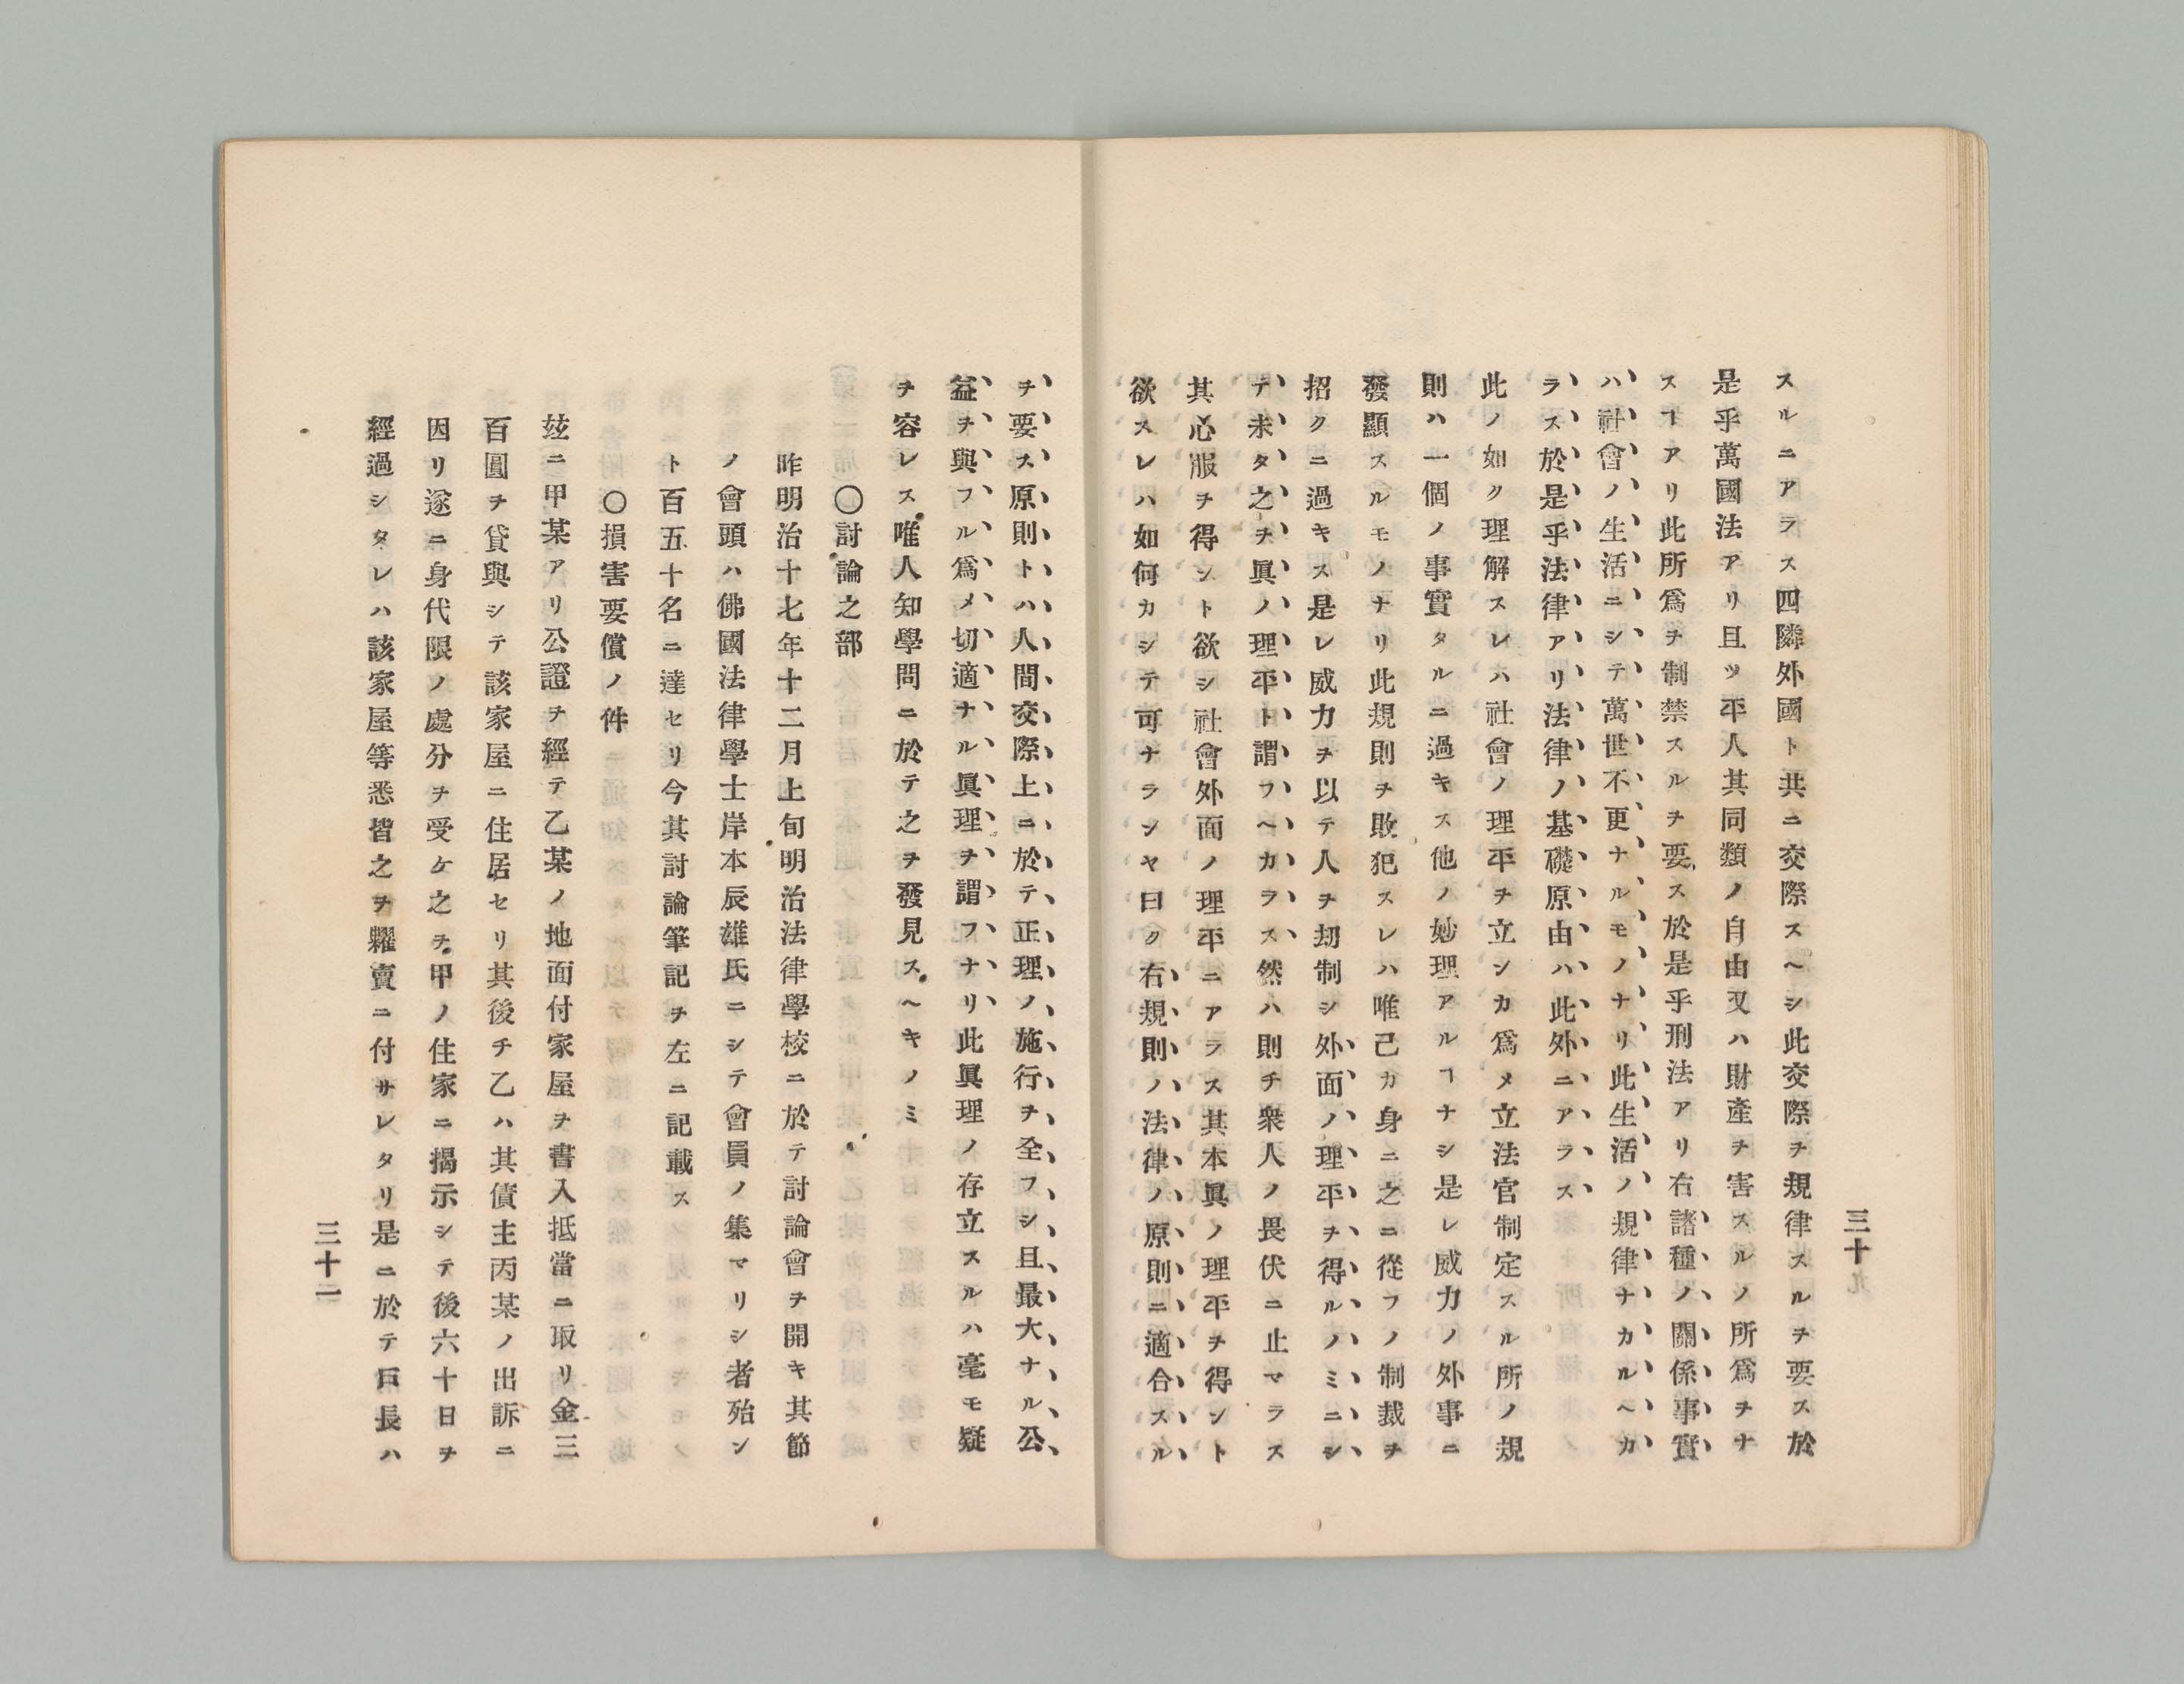 三十
スルニアラス四隣外國ト共ニ交際スヘシ此交際ヲ規律スルヲ要ス於
是乎萬國法アリ且ツ平人其同類ノ自由又ハ財產ヲ害スルノ所爲ヲナ
スヿアリ此所爲ヲ制禁スルヲ要ス於是乎刑法アリ右諸種ノ關係事實
ハ社會ノ生活ニシテ萬世不更ナルモノナリ此生活ノ規律ナカルヘカ
ラス於是乎法律アリ法律ノ基礎原由ハ此外ニアラス
此ノ如ク理解スレハ社會ノ理平ヲ立ンカ爲メ立法官制定スル所ノ規
則ハ一個ノ事實タルニ過キス他ノ妙理アルヿナシ是レ威力ノ外事ニ
發顯スルモノナリ此規則ヲ敗犯スレハ唯己カ身ニ之ニ從フノ制裁ヲ
招クニ過キス是レ威力ヲ以テ人ヲ刧制シ外面ノ理平ヲ得ルノミニシ
テ未タ之ヲ眞ノ理平ト謂フヘカラス然ハ則チ衆人ノ畏伏ニ止マラス
其心服ヲ得ント欲シ社會外面ノ理平ニアラス其本眞ノ理平ヲ得ント
欲スレハ如何カシテ可ナランヤ曰ク右規則ノ法律ノ原則ニ適合スル
ヲ要ス原則トハ人間交際上ニ於テ正理ノ施行ヲ全フシ且最大ナル公
益ヲ與フル爲メ切適ナル眞理ヲ謂フナリ此眞理ノ存立スルハ毫モ疑
ヲ容レス唯人知學問ニ於テ之ヲ發見スヘキノミ
〇討論之部
昨明治十七年十二月上旬明治法律學校ニ於テ討論會ヲ開キ其節
ノ會頭ハ佛國法律學士岸本辰雄氏ニシテ會員ノ集マリシ者殆ン
ト百五十名ニ達セリ今其討論筆記ヲ左ニ記載ス
〇損害要償ノ件
玆ニ甲某アリ公證ヲ經テ乙某ノ地面付家屋ヲ書入抵當ニ取リ金三
百圓ヲ貸與シテ該家屋ニ住居セリ其後チ乙ハ其債主丙某ノ出訴ニ
因リ遂ニ身代限ノ處分ヲ受ケ之ヲ甲ノ住家ニ揭示シテ後六十日ヲ
經過シタレハ該家屋等悉皆之ヲ糶賣ニ付サレタリ是ニ於テ戸長ハ
三十一